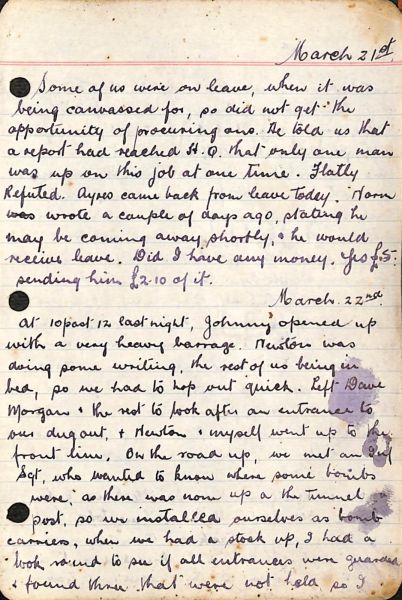 March 21st
Some of us were on leave, when it was
being canvassed for, so did not get the
opportunity of procuring ons. He told us that
a report had reached H.Q. that only one man
was up on this job at one time. Flatly
Refuted. Ayres came back from leave today. Norm
was wrote a couple of days ago, stating he
may be coming away shortly, & he would
receive leave. Did I have any money. Yes £5.
sending him £2.10 of it.
March. 22nd.
At 10 past 12 last night, Johnny opened up
with a very heavy barrage. Newton was
doing some writing, the rest of us being in
bed, so we had to hop out quick. Left Dave
Morgan & the rest to look after an entrance to
our dugout, & Newton & myself went up to the
front line. On the road up, we met an Inf
Sgt, who wanted to know where some bombs
were, as there was none up a the tunnel
post, so we installed ourselves as bomb
carriers, when we had a stock up, I had a
look round to see if all entrances were guarded
& found three that were not held so I